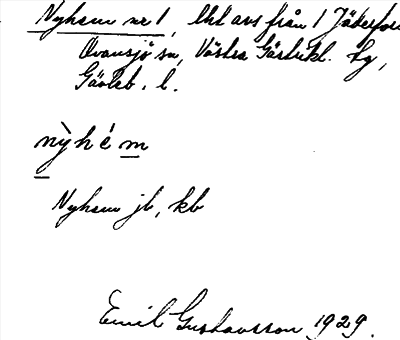 Nyhem nr 1, lht avs från 1 Jäderfors
Ovansjö sn, Västra Gästrikl. tg,
Gävleb. l.
nỳhém
Nyhem jb, kb
Emil Gustavsson 1929.